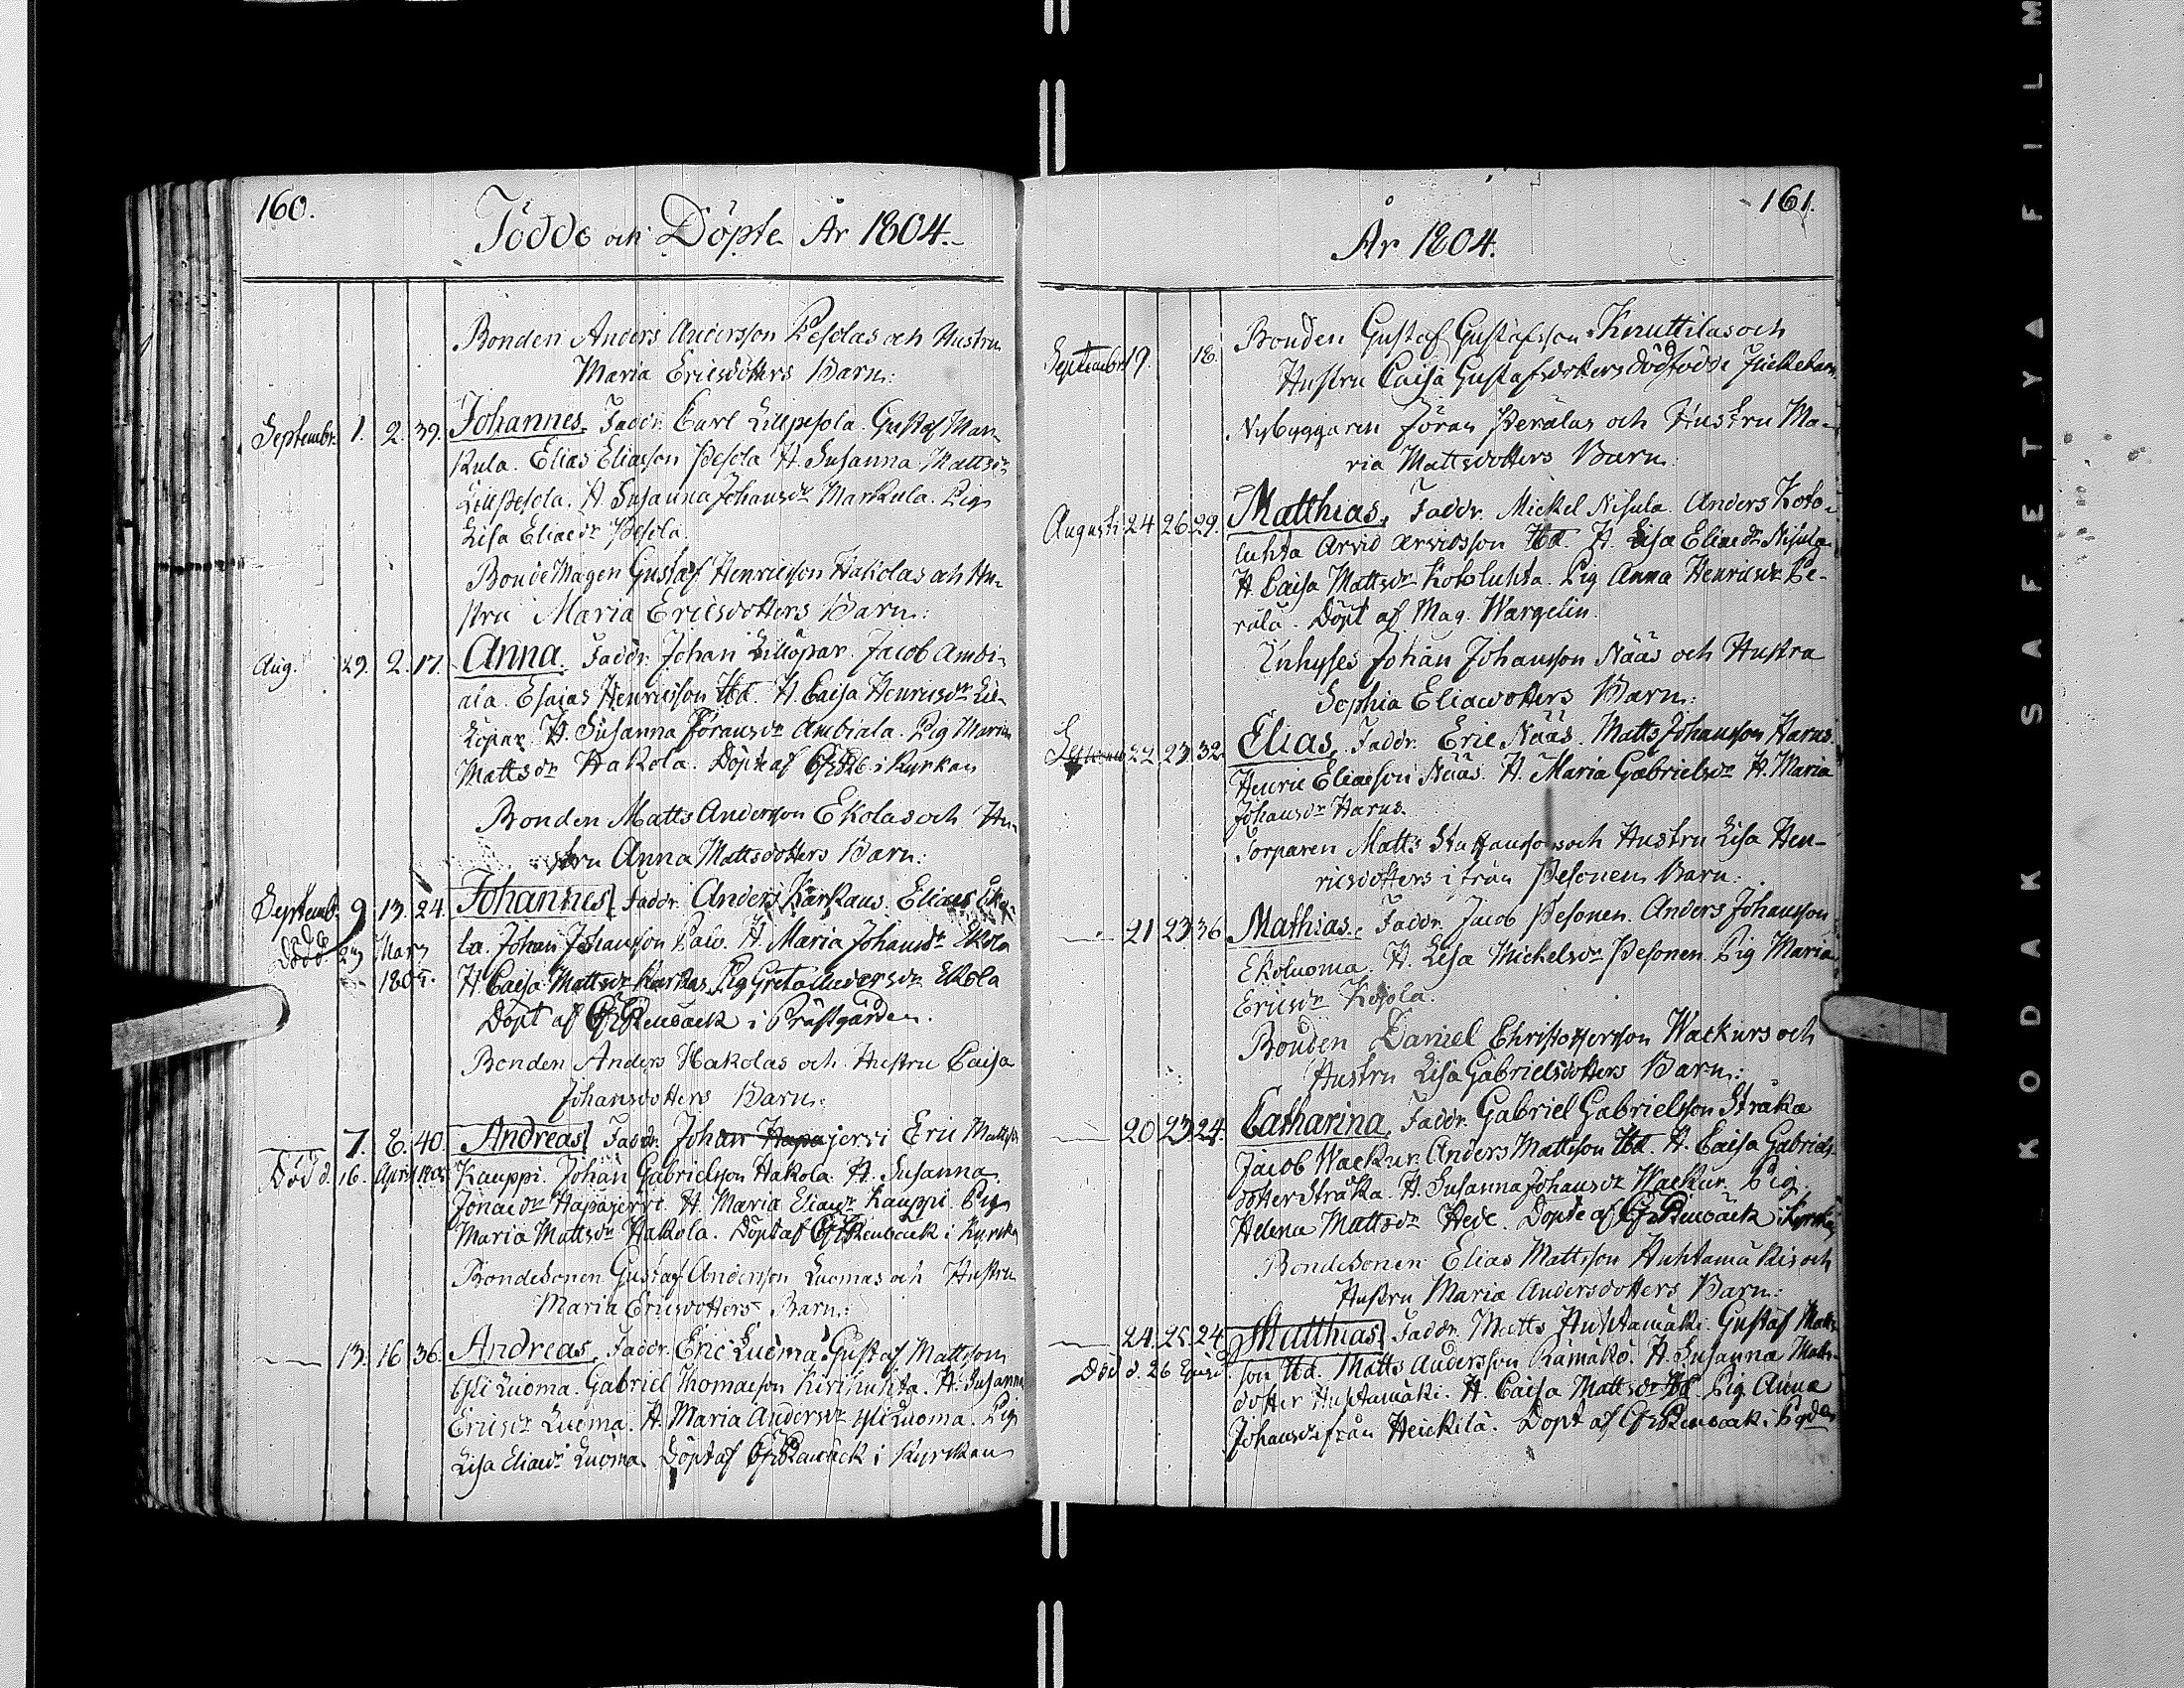 160.
Födde och Döpte År 1804.
Bonden Anders Andersson Pesolas och Hustru
Maria Ericsdotters Barn:
Septembr. 1. 2. 39. Johannes. Faddr. Carl Lillpesola. Gustaf Mar-
kula. Elias Eliasson Pesola H. Susanna Mattsdr
Lillpesola. H. Susanna Johansdr Markula. Pig
Lisa Eliaedr Pesola.
BondeMågen Gustaf Henricsson Hakolas och Hu-
stru Maria Ericsdotters Barn:
Aug. 29. 2. 17. Anna. Faddr. Johan Jacob Ambi-
ala. Esaias Henricsson Ibd. H. Caisa Henricsdr
H. Susanna Jöransdr Ambiala. Pig Maria
Mattsdr Hakola. Döpt af i Kyrkan
Bonden Matts Andersson Ekolas och Hu-
stru Anna Mattsdotters Barn:
Septemb. 9 13. 24. Johannes. Faddr. Anders Karkaus. Elias Eko-
Död d. 27 Mars la. Johan Johansson H. Maria Johansdr Ekola
1805. H. Caisa Mattsdr Karkas. Pig Greta Andersdr Ekola
Döpt af i Prästgården.
Bonden Anders Hakolas och Hustru Caisa
Johansdotters Barn:
7. 8. 40. Andreas. Faddr. Johan Hapajervi Eric Mattss
Död d. 16. April 1805 Kauppi. Johan Gabrielsson Hakola. H. Susanna
Jonaedr Hapajervi. H. Maria Eliaedr Kauppi. Pig
Maria Mattsdr Hakola. Döpt af i Kyrka
BondeSonen Gustaf Andersson Luomas och Hustru
Maria Ericsdotters Barn:
13. 16. 36. Andreas. Faddr. Eric Luoma. Gustaf Mattsson
Yliluoma. Gabriel Thomaeson H. Susanna
Ericsdr Luoma. H. Maria Andersdr Yliluoma. Pig
Lisa Eliaedr Luoma. Döpt af i Kyrkan
161.
År 1804.
Bonden Gustaf Gustafsson Knuttilas och
Septembr 19. 18. Hustru Caisa Gustafsdotters dödfödde
Nybyggaren Jöran Peräläs och Hustru Ma-
ria Mattsdotters Barn:
Augusti 24 26 29. Matthias. Faddr. Mickel Nisula. Anders Koto-
luhta Arvid Arvidsson Ibd. H. Lisa Eliaedr Nisula
H. Caisa Mattsdr Kotoluhta. Pig Anna Henricsdr Pe-
rälä. Döpt af Mag. Wargelin.
Inhyses Johan Johansson Nääs och Hustru
Sophia Eliaedotters Barn:
22. 23. 32. Elias. Faddr. Eric Nääs. Matts Johansson Harus.
Henric Eliaeson Nääs. H. Maria Gabrielsdr H. Maria
Johansdr Harus.
Torparen Matts och Hustru Lisa Hen-
ricsdotters ifrån Pesonen Barn:
21 23 36 Mathias. Faddr. Jacob Pesonen. Anders Johansson
Ekoluoma. H. Lisa Mickelsdr Pesonen. Pig Maria
Ericsdr Kojola.
Bonden Daniel Christoffersson Wackurs och
Hustru Lisa Gabrielsdotters Barn:
20 23 24. Catharina. Faddr. Gabriel Gabrielsson Stråka
Jacob Wackur. Anders Mattsson Ibd. H. Caisa Gabriels-
dotter Stråka. H. Susanna Johansdr Wackur. Pig
Helena Mattsdr Hede. Döpte af i Kyrka
BondeSonen Elias Mattsson Huhtamäkis och
Hustru Maria Andersdotters Barn:
24. 25. 24. Matthias. Faddr. Matts Huhtamäki. Gustaf Matts-
Död d. 26 son Ibd. Matts Andersson Rämäkö. H. Susanna Matts-
dotter Huhtamäki. H. Caisa Mattsdr Ibd. Pig Anna
Johansdr ifrån Heickilä. Döpt af i Pgden
KODAK SAFETY FILM